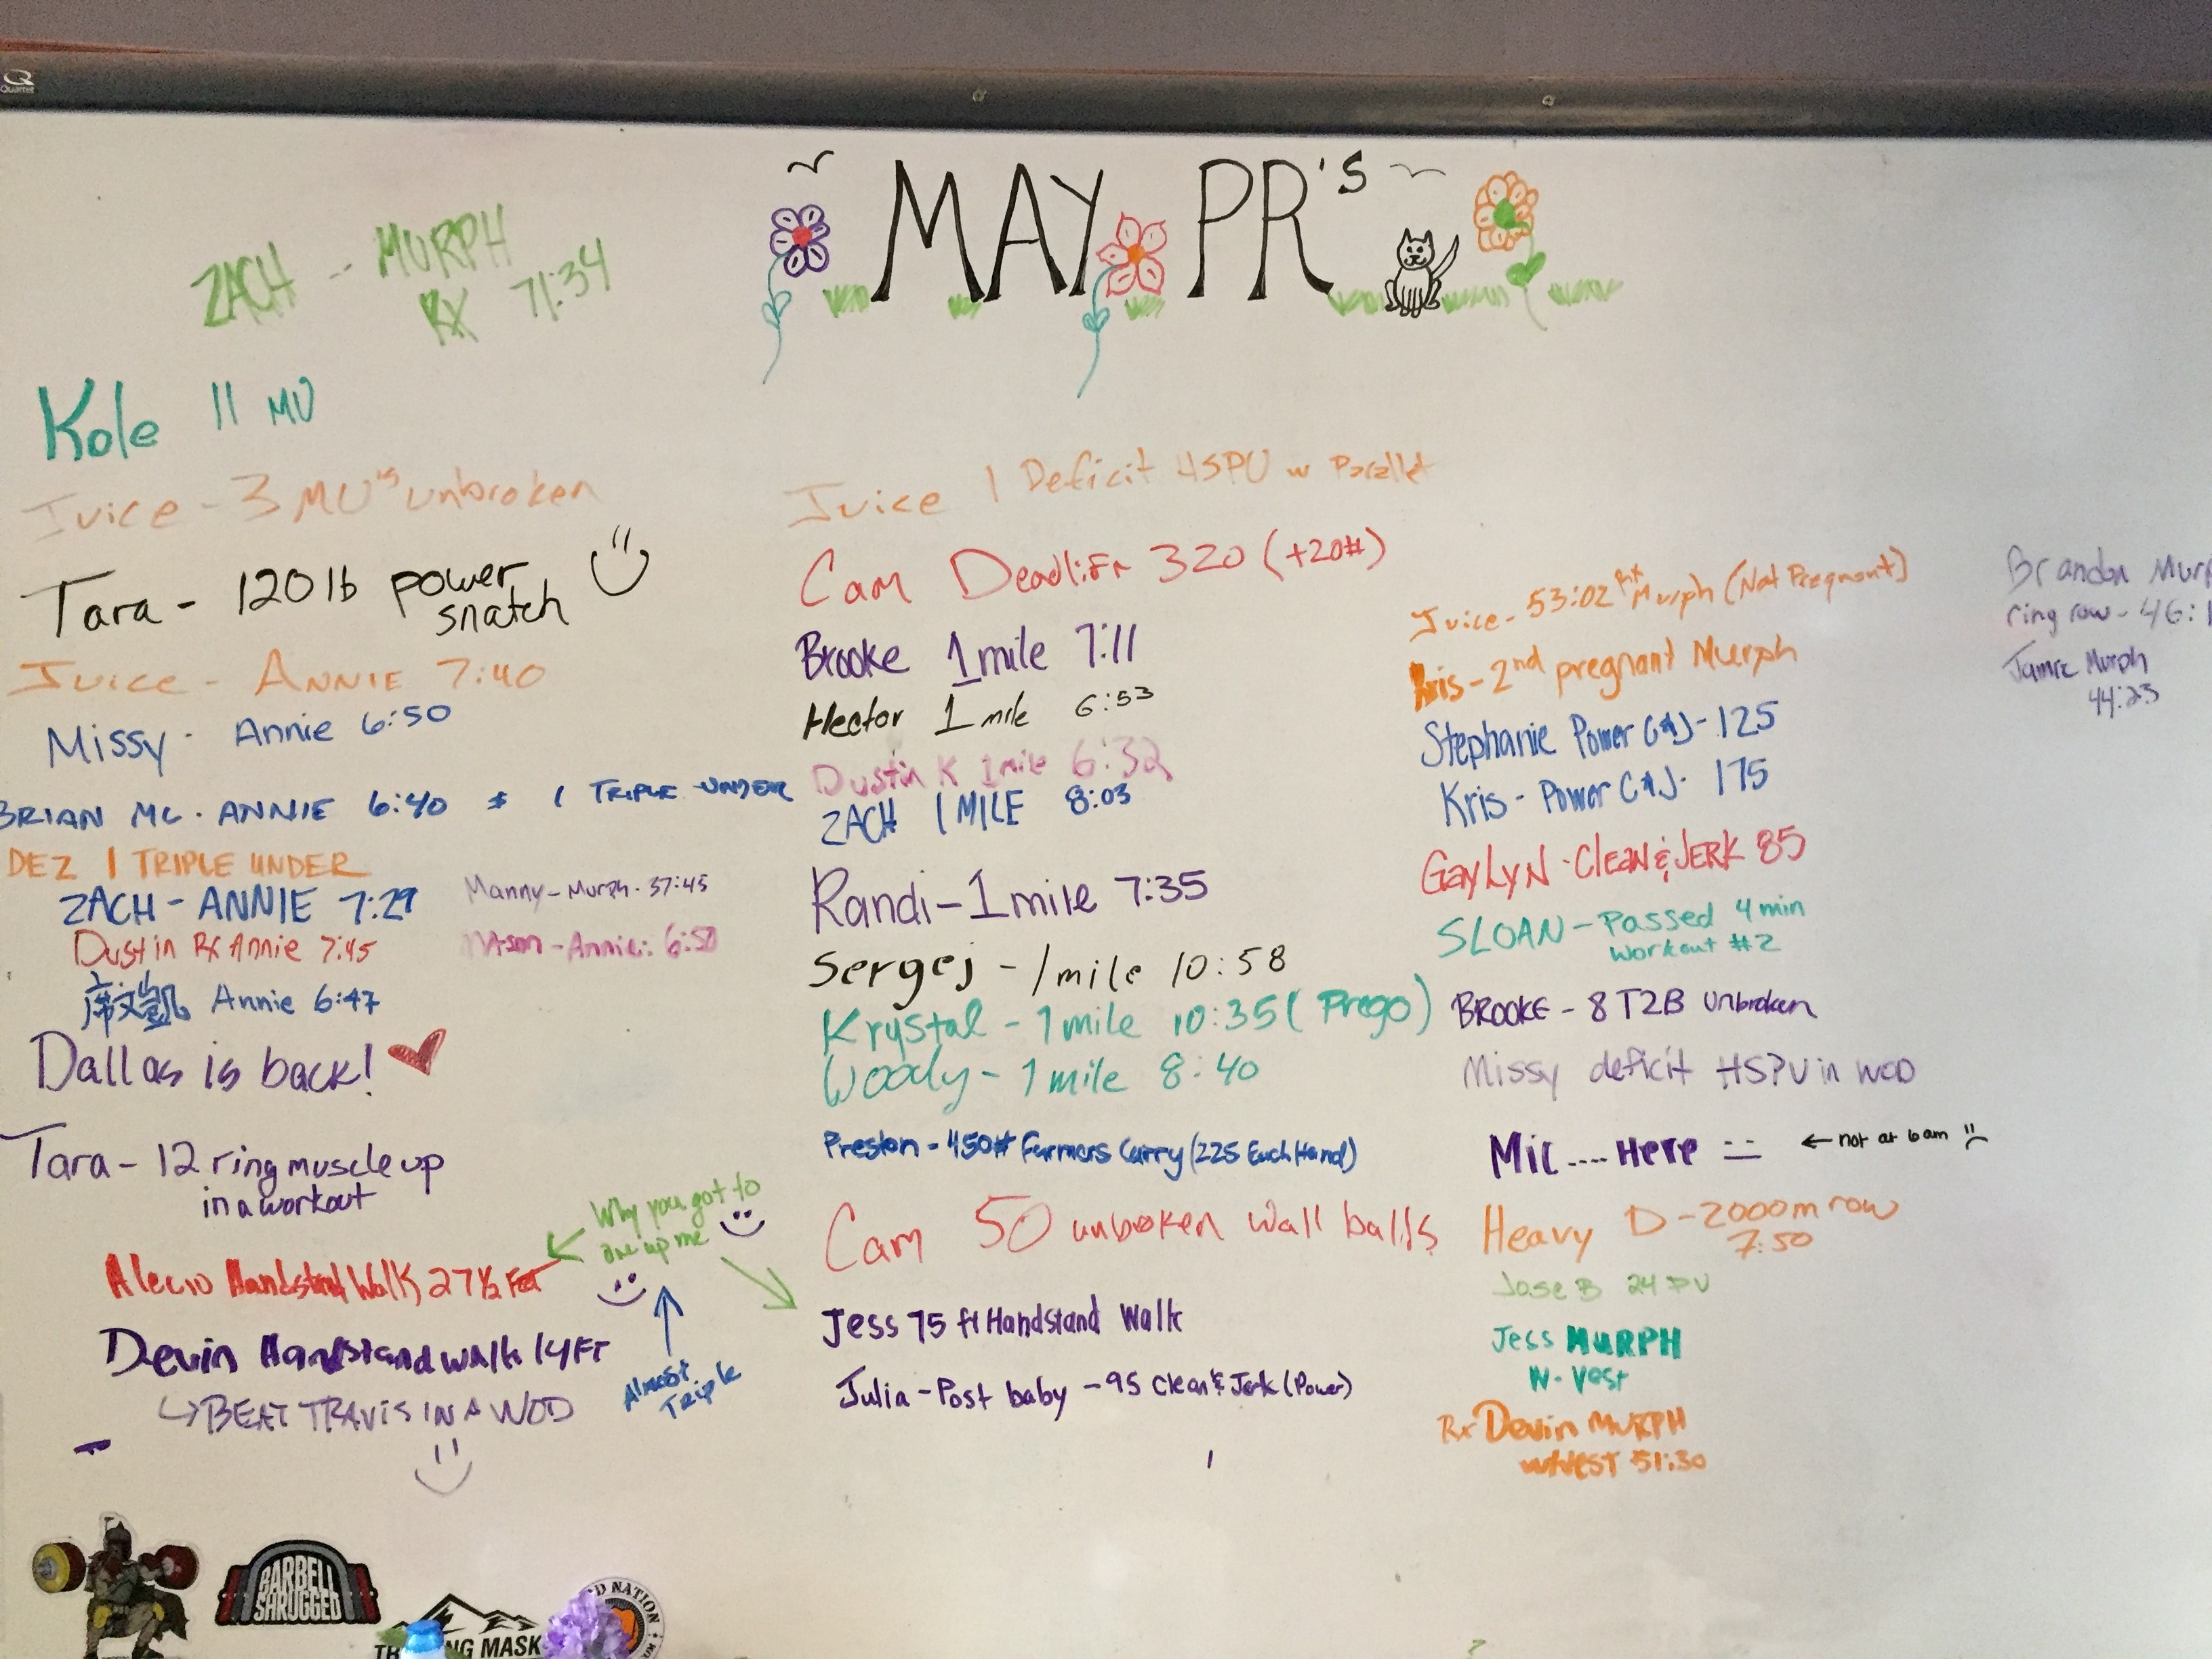 Quartet
MAY PR'S
ZACH -- MURPH
RX 71:34
Kole 11 MU
Juice - 3 MU's unbroken
Tara - 120 lb power
snatch
Juice - ANNIE 7:40
Missy - Annie 6:50
BRIAN MC. ANNIE 6:40 & 1 TRIPLE UNDER
DEZ 1 TRIPLE UNDER
ZACH - ANNIE 7:29
Manny - Murph - 37:45
Dustin Rx Annie 7:45
Mason - Annie: 6:50
席文凱 Annie 6:47
Dallas is back!
Tara - 12 ring muscle up
in a workout
Why you got to
one up me
Alecio Handstand Walk 27 1/2 Feet
Devin Handstand walk 14 FT
↳ BEAT TRAVIS IN A WOD
Almost
Triple
Juice 1 Deficit HSPU w Parallet
Cam Deadlift 320 (+20#)
Brooke 1 mile 7:11
Hector 1 mile 6:53
Dustin K 1 mile 6:32
ZACH 1 MILE 8:03
Randi - 1 mile 7:35
Sergej - 1 mile 10:58
Krystal - 1 mile 10:35 (Prego)
Woody - 1 mile 8:40
Preston - 450# Farmers Carry (225 Each Hand)
Cam 50 unbroken wall balls
Jess 75 ft Handstand Walk
Julia - Post baby - 95 Clean & Jerk (Power)
Juice - 53:02 Murph (Not Pregnant)
Kris - 2nd pregnant Murph
Stephanie Power C&J - 125
Kris - Power C&J - 175
GayLyN - Clean & JERK 85
SLOAN - Passed 4 min
workout #2
BROOKE - 8 T2B unbroken
Missy deficit HSPU in WOD
Mic .... Here ← not at 6am
Heavy D - 2000m row
7:50
Jose B 24 PU
Jess MURPH
W. Vest
Rx Devin MURPH
w/vest 51:30
Brandon Murp
ring row - 46:1
Jamie Murph
44:23
BARBELL
SHRUGGED
NG MASK
D NATION